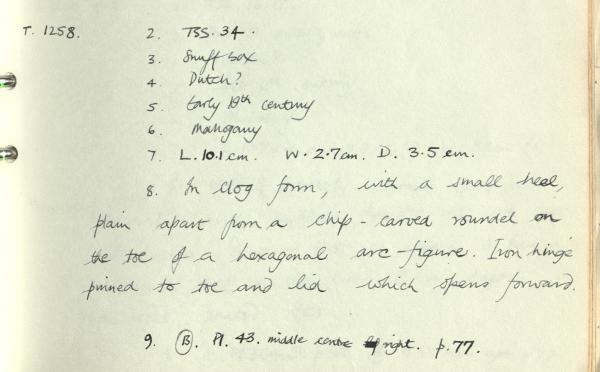 T. 1258. 2. TSS. 34.
3. Snuff box
4. Dutch?
5. Early 19th century
6. Mahogany
7. L. 10.1 cm. W. 2.7 cm. D. 3.5 cm.
8. In clog form, with a small heel,
plain apart from a chip-carved roundel on
the toe of a hexagonal arc-figure. Iron hinge
pinned to toe and lid which opens forward.
9. B. Pl. 43. middle centre right. p. 77.